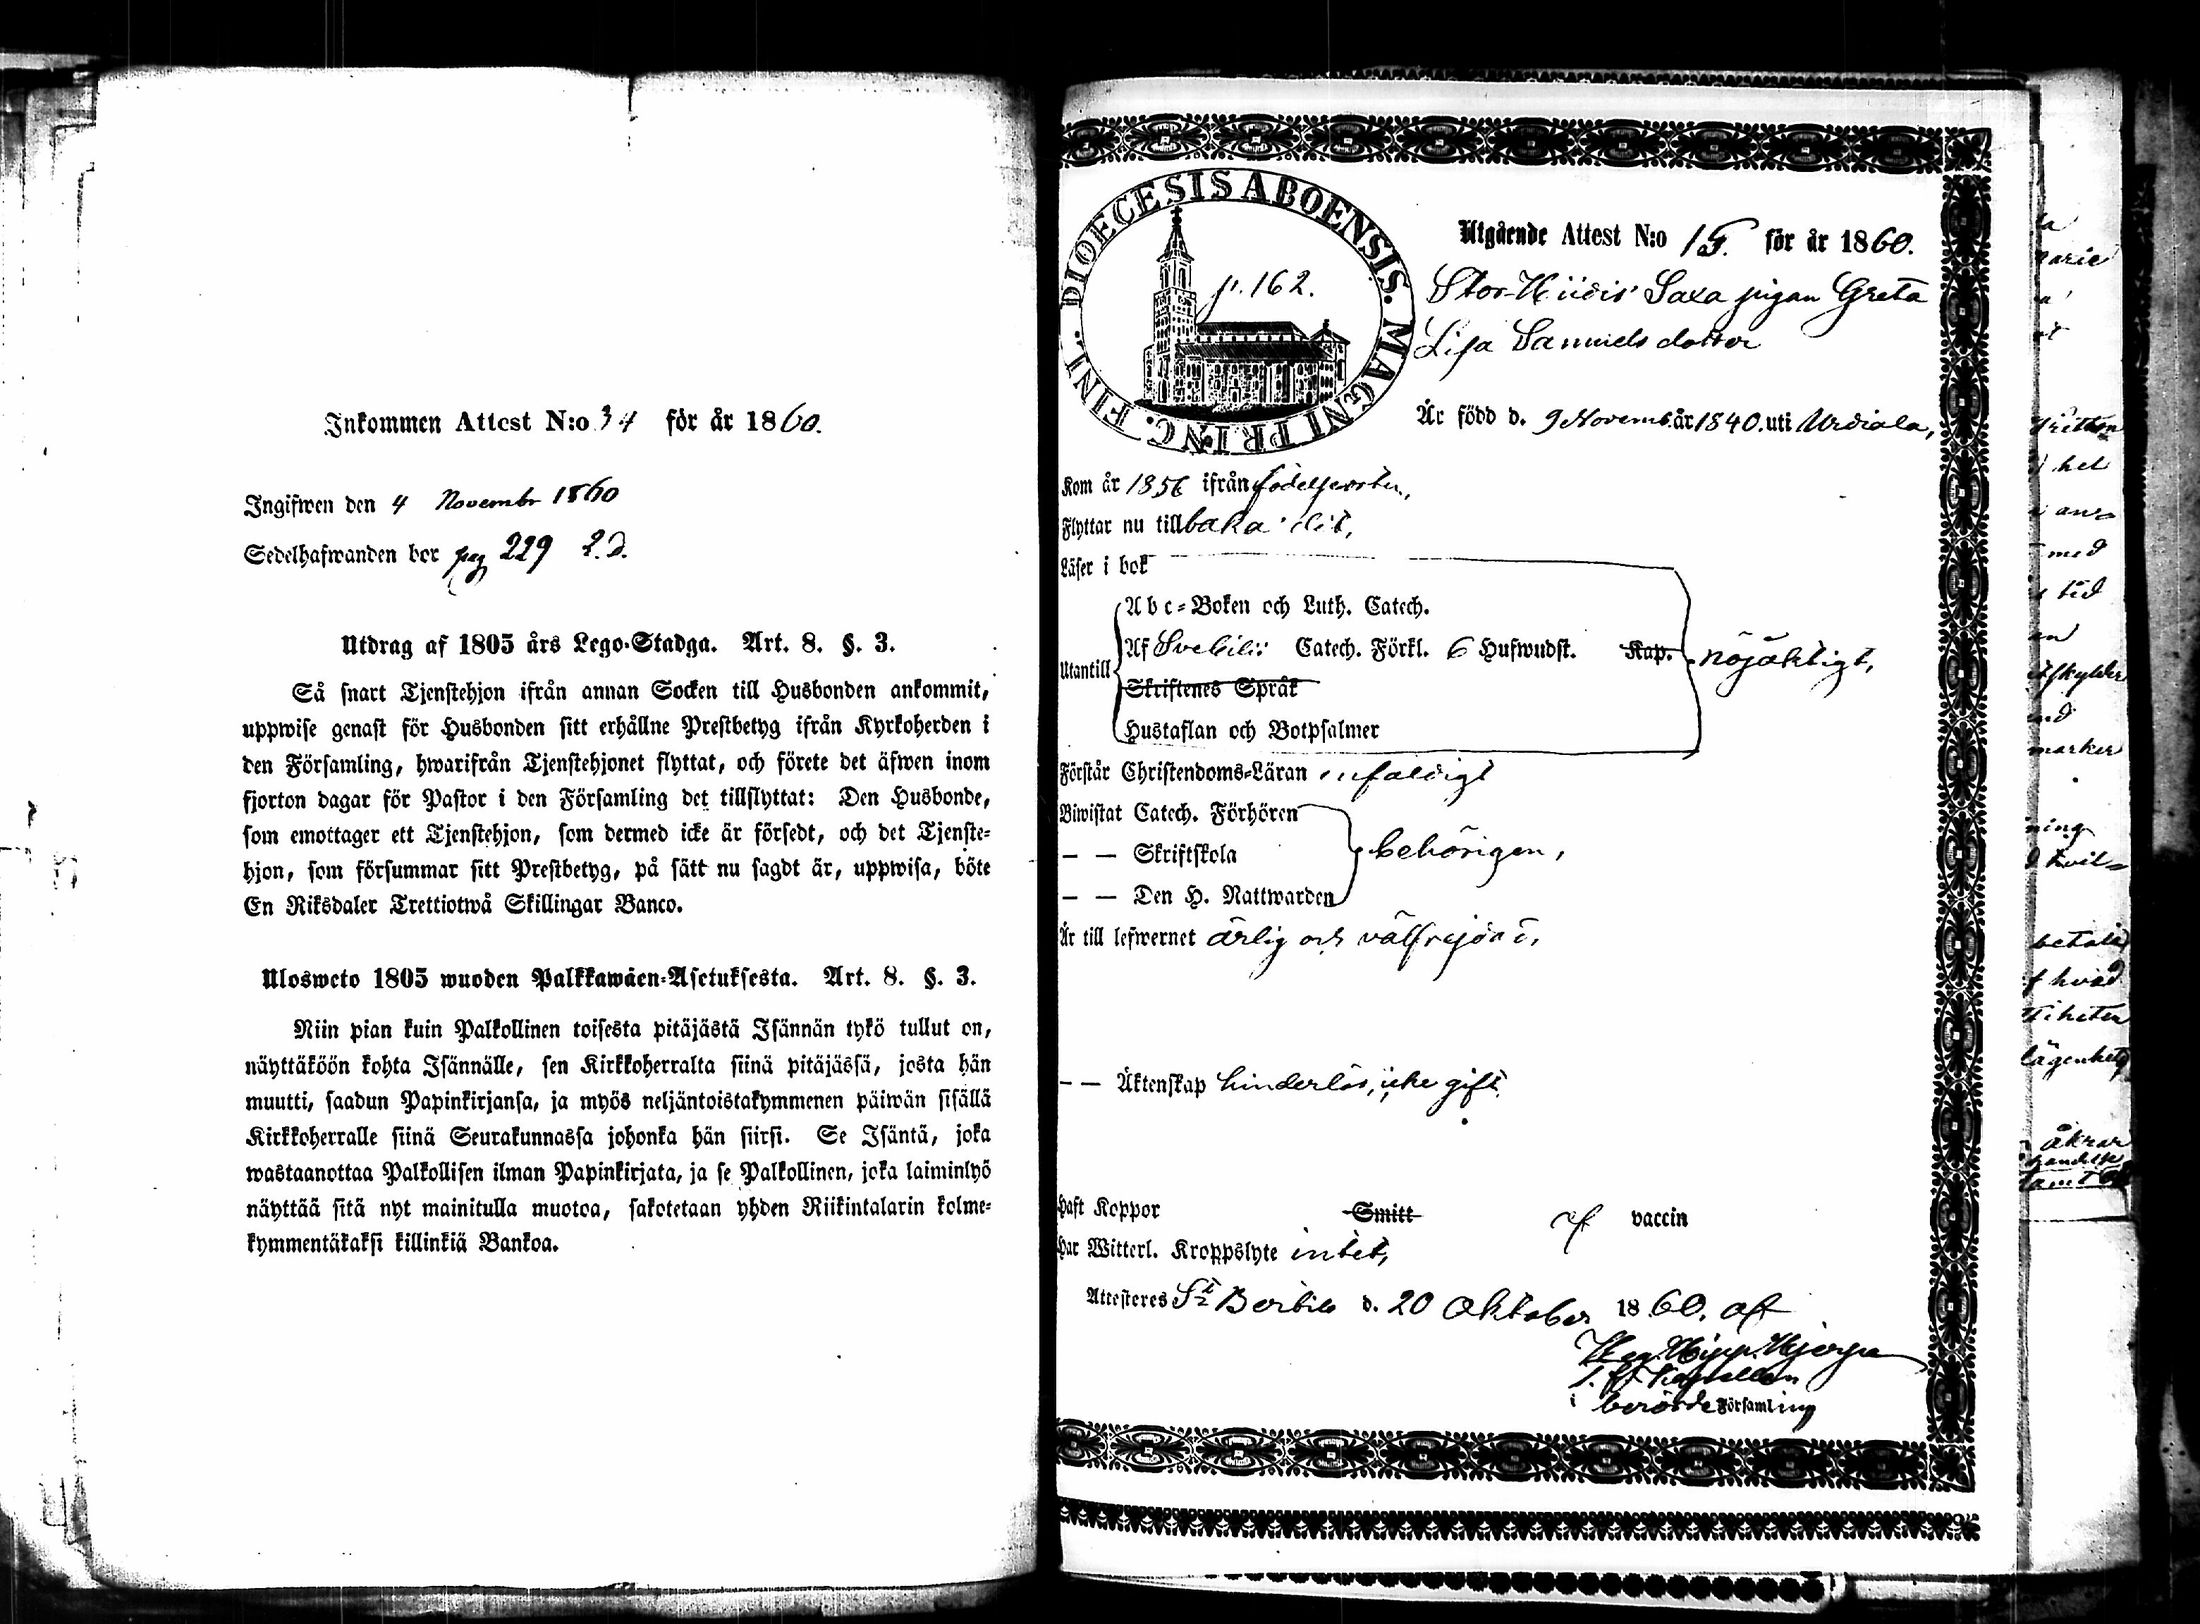 Inkommen Attest N:o 34 för år 1860.
Ingifwen den 4 Novembr 1860
Sedelhafwanden bor pag 229 L.d.
Utdrag af 1805 års Lego-Stadga. Art. 8. §. 3.
Så snart Tjenstehjon ifrån annan Socken till Husbonden ankommit,
uppwise genast för Husbonden sitt erhållne Prestbetyg ifrån Kyrkoherden i
den Församling, hwarifrån Tjenstehjonet flyttat, och förete det äfwen inom
fjorton dagar för Pastor i den Församling det tillflyttat: Den Husbonde,
som emottager ett Tjenstehjon, som dermed icke är försedt, och det Tjenste-
hjon, som försummar sitt Prestbetyg, på sätt nu sagdt är, uppwisa, böte
En Riksdaler Trettiotwå Skillingar Banco.
Ulosweto 1805 wuoden Palkkawäen-Asetuksesta. Art. 8. §. 3.
Niin pian kuin Palkollinen toisesta pitäjästä Isännän tykö tullut on,
näyttäköön kohta Isännälle, sen Kirkkoherralta siinä pitäjässä, josta hän
muutti, saadun Papinkirjansa, ja myös neljäntoistakymmenen päiwän sisällä
Kirkkoherralle siinä Seurakunnassa johonka hän siirsi. Se Isäntä, joka
wastaanottaa Palkollisen ilman Papinkirjata, ja se Palkollinen, joka laiminlyö
näyttää sitä nyt mainitulla muotoa, sakotetaan yhden Riikintalarin kolme-
kymmentäkaksi killinkiä Bankoa.
DIOECESIS ABOENSIS. MAGNI PRINC. FINL.
p. 162.
Utgående Attest N:o 15. för år 1860.
Stor-Hiidis Saxa pigan Greta
Lisa Samuelsdotter
Är född d. 9 Novemb. år 1840. uti Urdiala,
Kom år 1856 ifrån födelseorten,
Flyttar nu tillbaka dit,
Läser i bok
Abc-Boken och Luth. Catech.
Utantill Af Svebilii Catech. Förkl. 6 Hufwudst. Kap. nöjaktigt,
Skriftenes Språk
Hustaflan och Botpsalmer
Förstår Christendoms-Läran enfaldigt
Biwistat Catech. Förhören
— — Skriftskola behörigen,
— — Den H. Nattwarden
Är till lefwernet ärlig och välfrejdad,
— — Äktenskap hinderlös, icke gift.
Haft Koppor Smitt af vaccin
Har Witterl. Kroppslyte intet,
Attesteres St Bertils d. 20 Oktober 1860. af
i berörde Församling